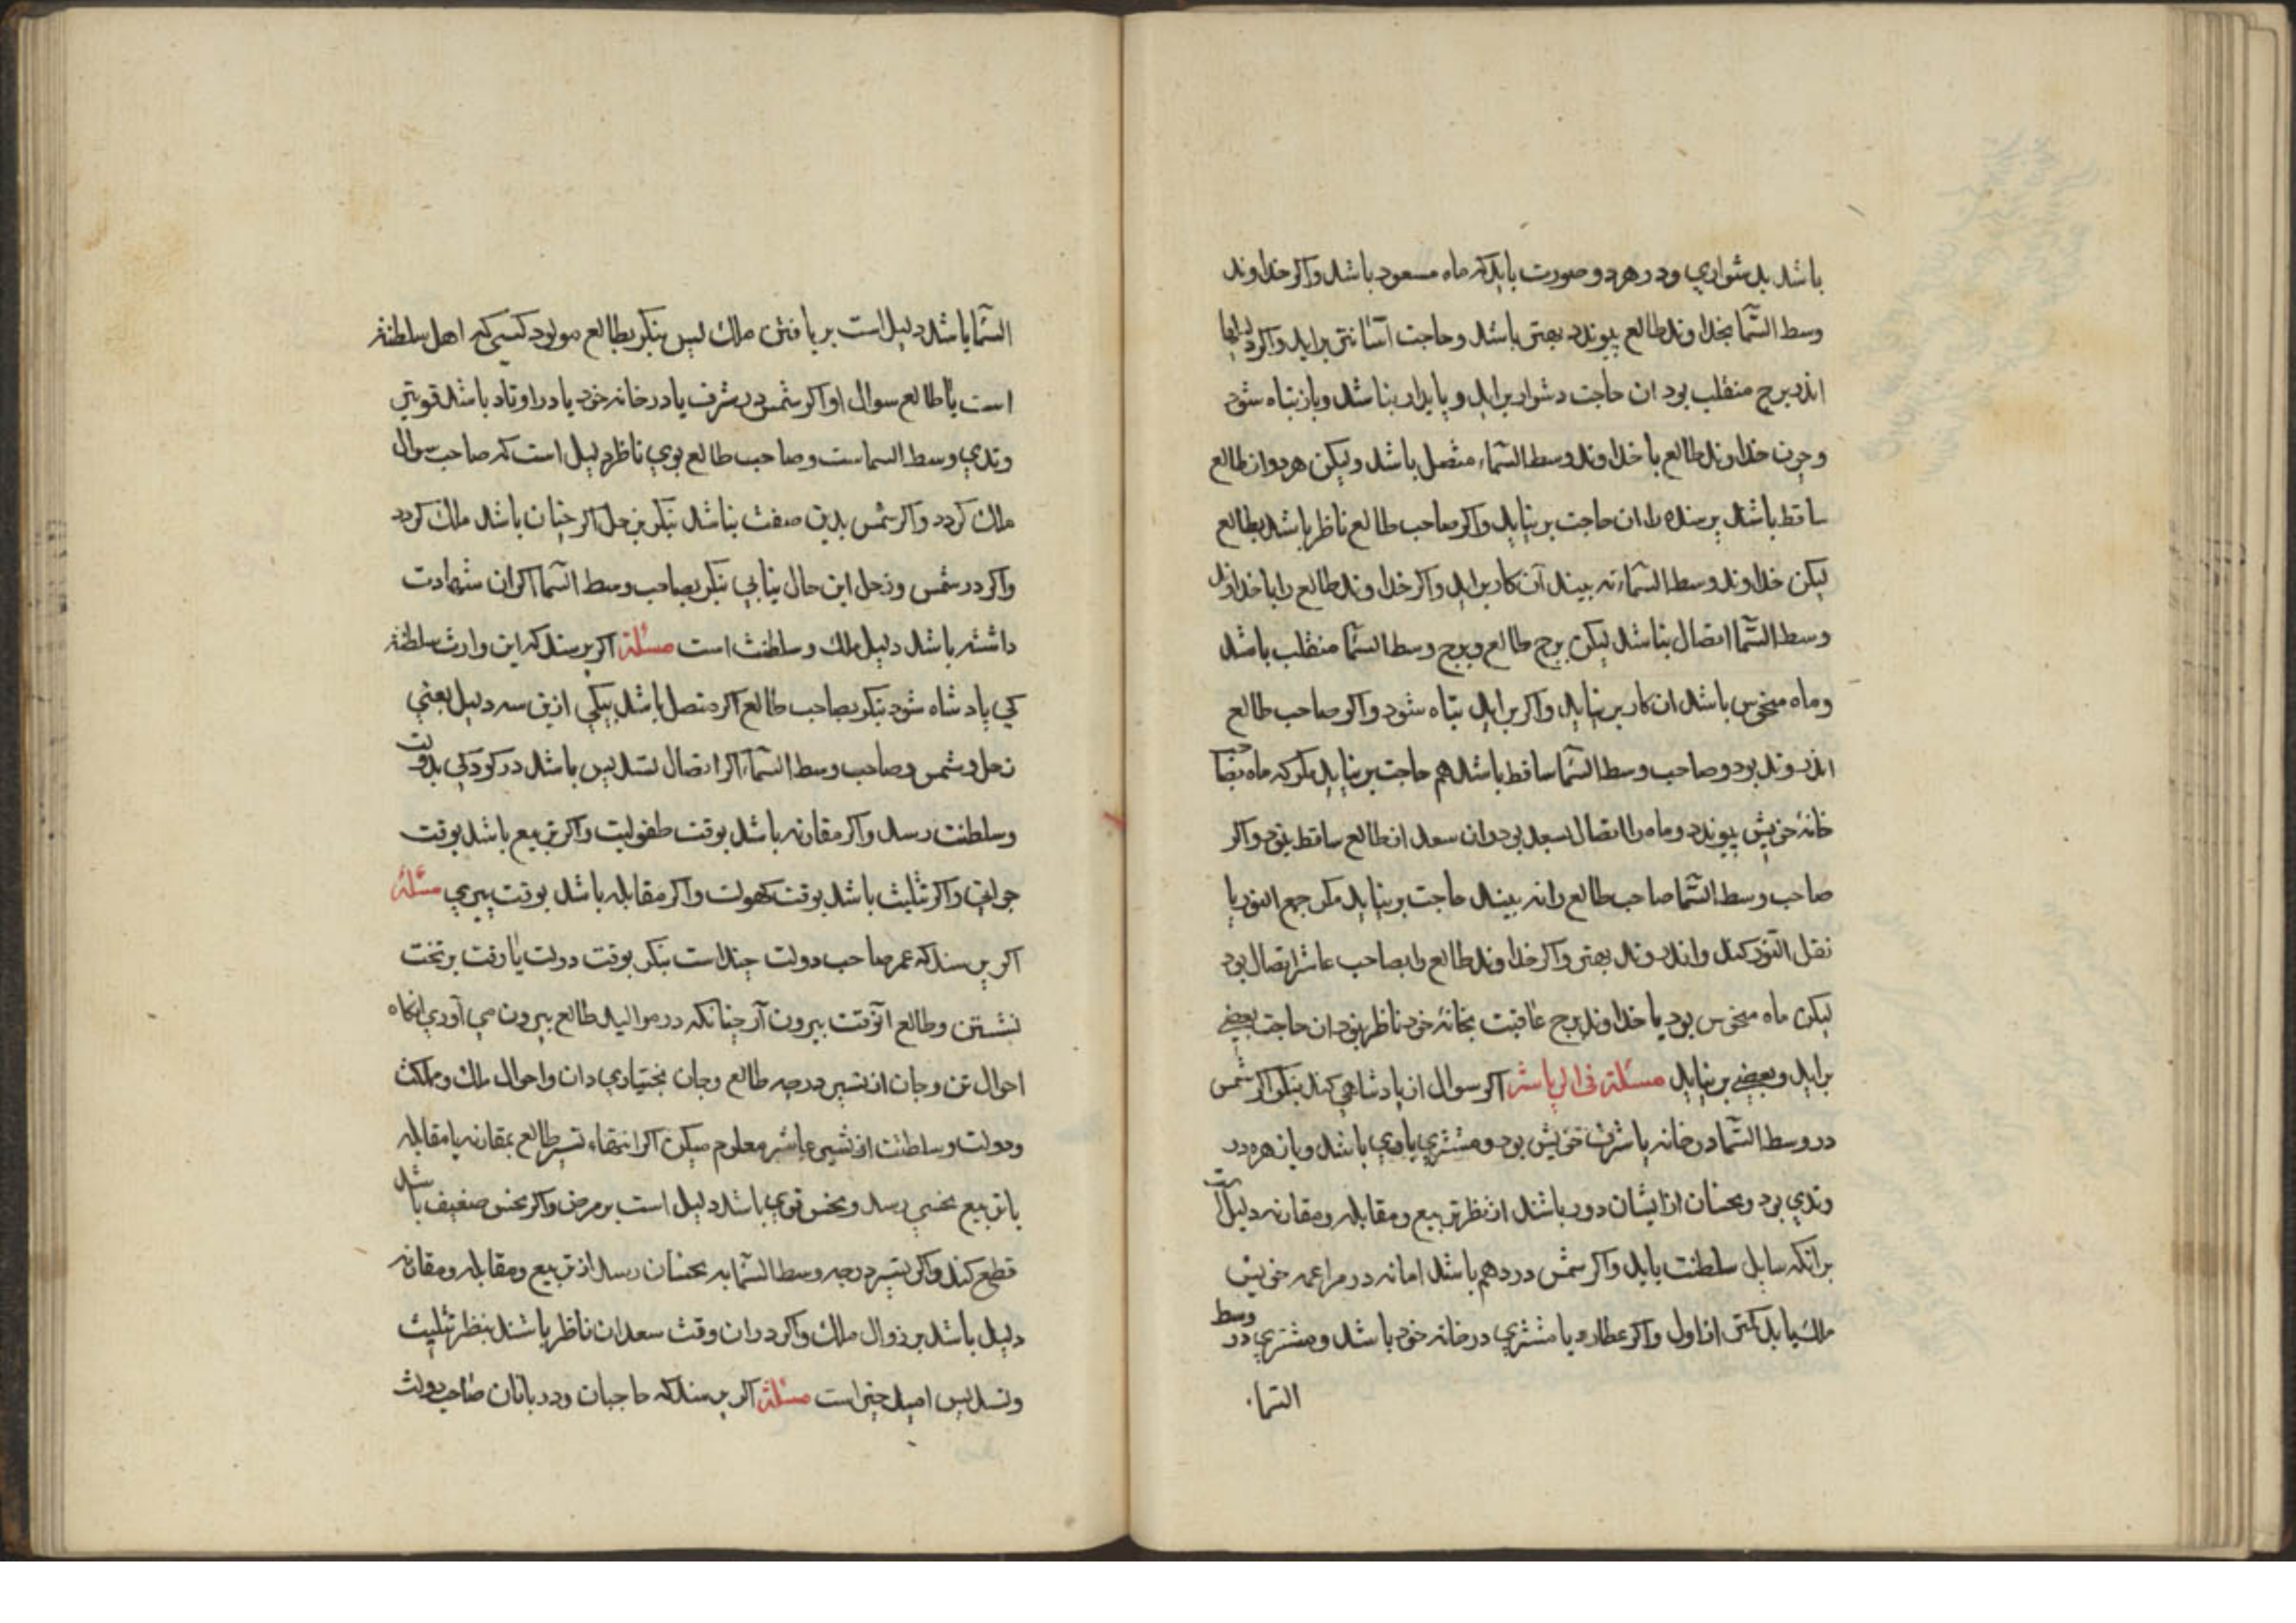 باشد بدشواري ودر هر دو صورت بايد كه ماه مسعود باشد واكر خداوند
وسط السّما بخداوند طالع پيوندد بهتر باشد وحاجت آسانتر برايد واكر
اندر برج منقلب بود ان حاجت دشوار برايد وپايدار نباشد وباز تباه شود
وچون خداوند طالع با خداوند وسط السّماء متصل باشد وليكن هر دو از طالع
ساقط باشند پرسنده را ان حاجت بر نيايد واكر صاحب طالع ناظر باشد بطالع
ليكن خداوند وسط السّماء نه بيند آن كار برايد واكر خداوند طالع را با خداوند
وسط السّما اتصال نباشد ليكن برج طالع وبرج وسط السّما منقلب باشد
وماه منحوس باشد ان كار بر نيايد واكر برايد تباه شود واكر صاحب طالع
اندر وتد بود وصاحب وسط السّما ساقط باشد هم حاجت بر نيايد مكر كه ماه
خانهٔ خويش پيوندد وماه را اتصال بسعد بود وان سعد از طالع ساقط نبود واكر
صاحب وسط السّما صاحب طالع را نه بيند حاجت بر نيايد مكر جمع النور يا
نقل النّور كند واندر وتد بهتر واكر خداوند طالع را بصاحب عاشر اتصال بود
ليكن ماه منحوس بود يا خداوند برج عاقبت بخانهٔ خود ناظر نبود ان حاجت بعضي
برايد وبعضي بر نيايد مسئلة فى الرياسة اكر سوال از پادشاهي كند بنكر اكر شمس
در وسط السّما در خانه يا شرف خويش بود ومشتري با وي باشد ويا زهره در
وتدي بود ونحسان از ايشان دور باشند از نظر تربيع ومقابله ومقارنه دليل است
برانكه سايل سلطنت يابد واكر شمس در دهم باشد اما نه در مزاعمه خويش
ملك يابد كمتر از اول واكر عطارد يا مشتري در خانه خود باشد ومشتري در وسط
السّما
السّما باشد دليل است بر يافتن ملك پس بنكر بطالع مولود كسي كه اهل سلطنة
است يا طالع سوال او اكر شمس در شرف يا در خانه خود يا در اوتاد باشد قويتر
وتدي وسط السماست وصاحب طالع بوي ناظر دليل است كه صاحب سوال
ملك كردد واكر شمس بدين صفت نباشد بنكر بزحل اكر چنان باشد ملك كردد
واكر در شمس وزحل اين حال نيابي بنكر بصاحب وسط السّما اكر ان شهادت
داشته باشد دليل ملك وسلطنت است مسئلة اكر پرسند كه اين وارث سلطنة
كي پادشاه شود بنكر بصاحب طالع اكر متصل باشد بيكي ازين سه دليل يعني
زحل وشمس وصاحب وسط السّماء اكر اتصال تسديس باشد در كودكي بدولت
وسلطنت رسد واكر مقارنه باشد بوقت طفوليت واكر تربيع باشد بوقت
جواني واكر تثليث باشد بوقت كهولت واكر مقابله باشد بوقت پيري مسئلة
اكر پرسند كه عمر صاحب دولت چند است بنكر بوقت دولت يا وقت بر تخت
نشستن وطالع انوقت بيرون آر چنانكه در مواليد طالع بيرون مي آوري انكاه
احوال تن وجان از تسير درجه طالع وجان بختياري دان واحوال ملك ومملكت
ودولت وسلطنت از تسير عاشر معلوم ميكن اكر انتهاء تسير طالع بمقارنه يا مقابله
يا تربيع نحسي رسد ونحس قوي باشد دليل است بر مرض واكر نحس ضعيف باشد
قطع كند واكر تسير درجه وسط السّما به نحسان رسد از تربيع ومقابله ومقارنه
دليل باشد بر زوال ملك واكر دران وقت سعدان ناظر باشند بنظر تثليث
وتسديس اميد چيز است مسئلة اكر پرسند كه حاجبان ودربانان صاحب دولت